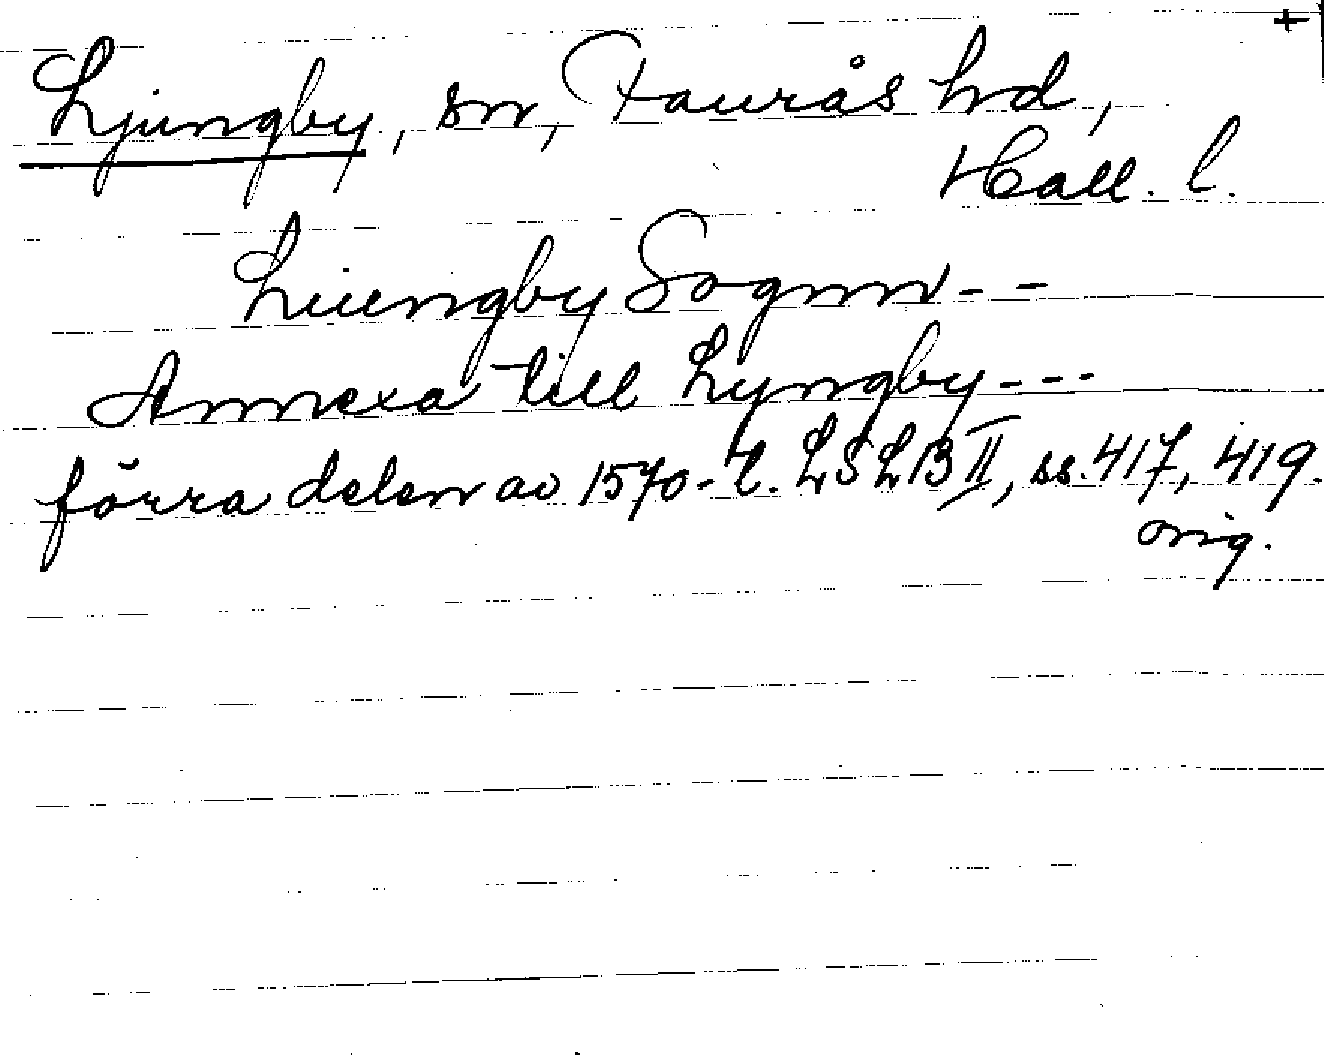 +
Ljungby, sn, Faurås hd,
Hall. l.
Liungby Sognn - -
Annexa till Lyngby - - -
förra delen av 1570-t. LSLB II, ss. 417, 419.
orig.